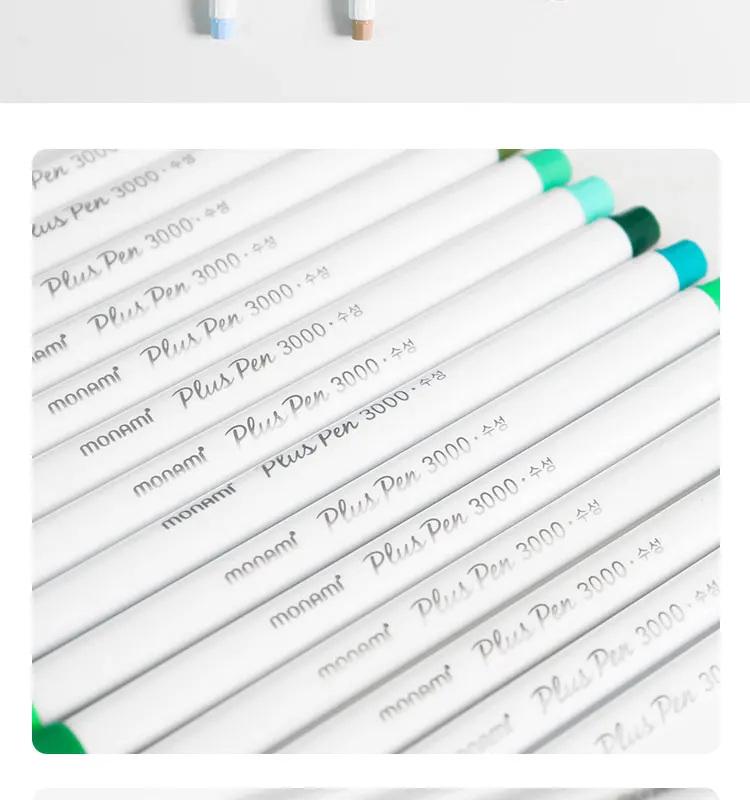 Pen 3000
lus Pen 3000 · 수성
Plus Pen 3000 · 수성
nami Plus Pen 3000 · 수성
monami Plus Pen 3000 · 수성
monami Plus Pen 3000 · 수성
monami Plus Pen 3000 · 수성
monami Plus Pen 3000 · 수성
monami Plus Pen 3000 · 수성
monami Plus Pen 3000 · 수성
monami Plus Pen 3000 · 수성
monami Plus Pen 3000 · 수성
monami Plus Pen 3000 · 수성
Plus Pen 30